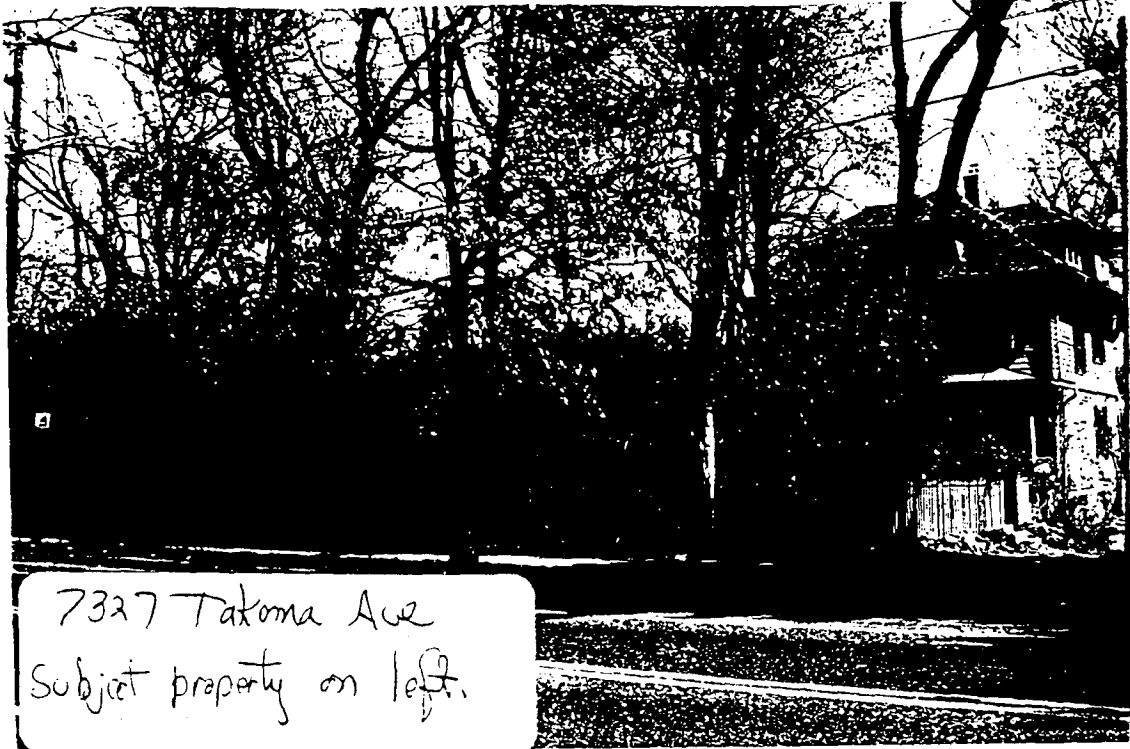 7327 Takoma Ave
Subject property on left.